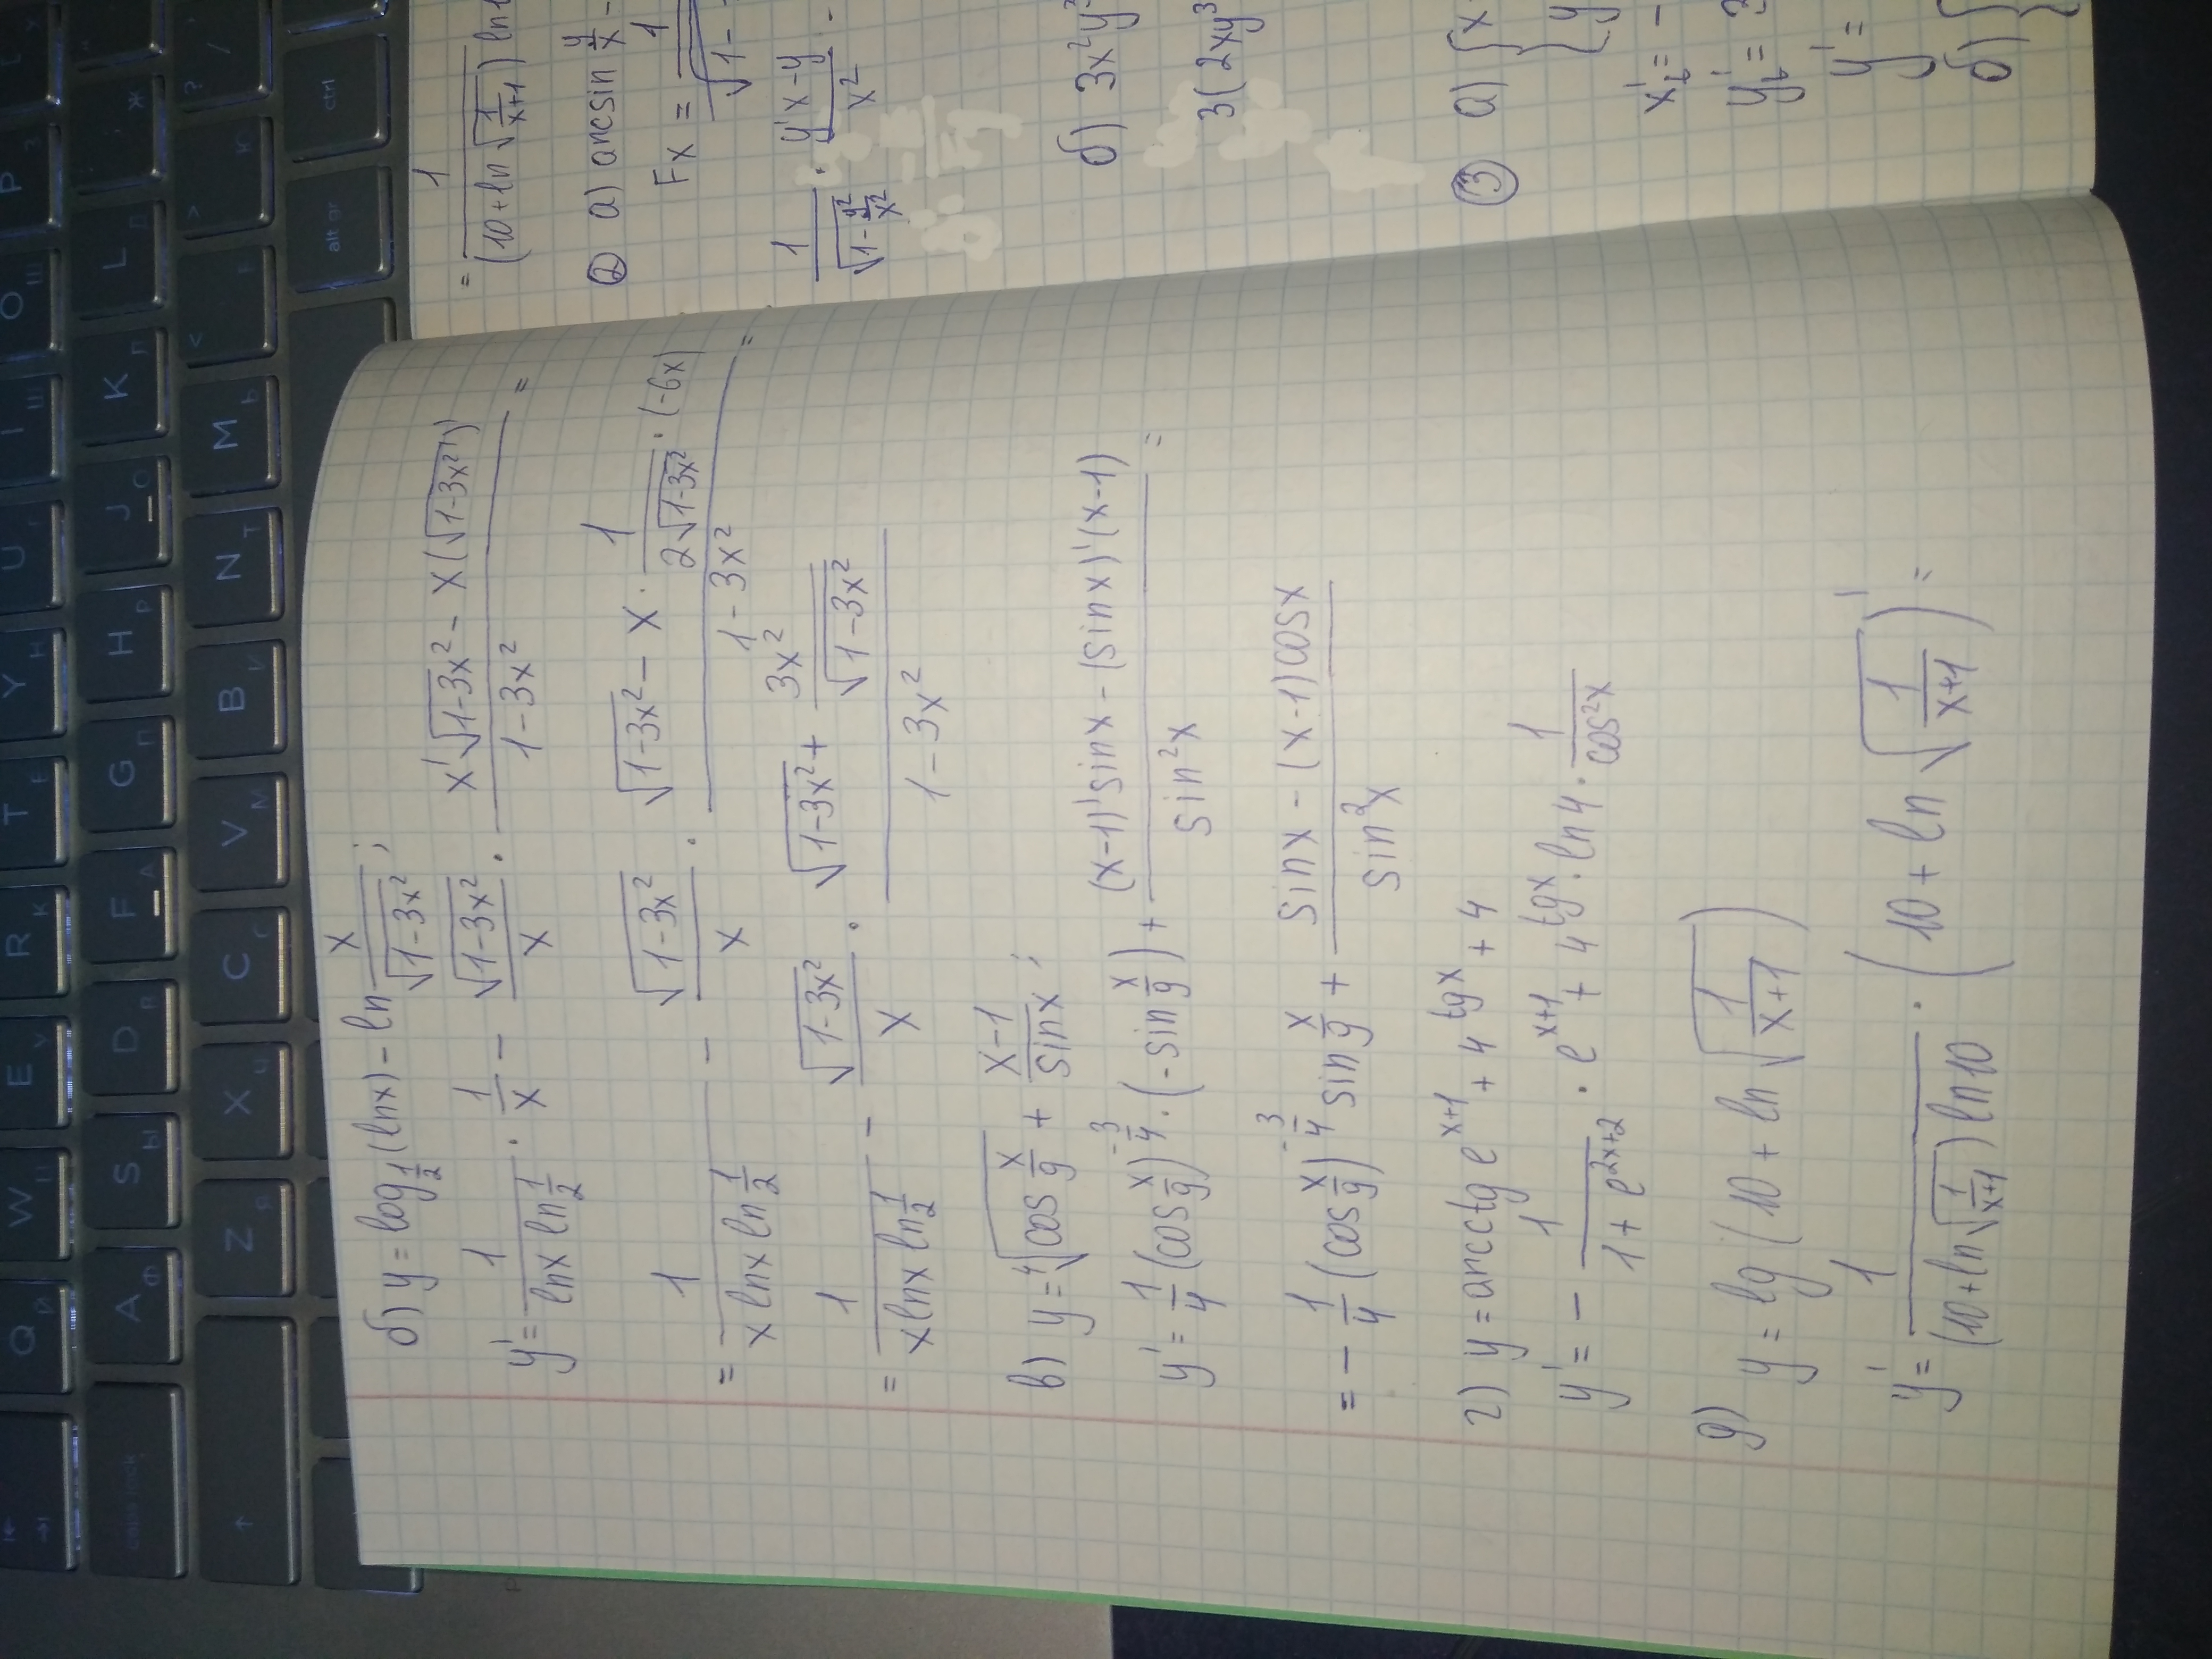 Q Й W Ц E У R К T Е Y Н U Г I Ш O Щ P З
caps lock A Ф S Ы D В F А G П H Р J О K Л L Д Ж
Z Я X Ч C С V М B И N Т M Ь < Б > Ю ? /
alt gr ctrl
б) y = log_{1/2} (lnx) - ln x/√(1-3x²) ;
y' = 1/(lnx ln 1/2) · 1/x - √(1-3x²)/x · (x'√(1-3x²) - x(√(1-3x²))')/(1-3x²) =
= 1/(x lnx ln 1/2) - √(1-3x²)/x · (√(1-3x²) - x · 1/(2√(1-3x²)) · (-6x))/(1-3x²) =
= 1/(x lnx ln 1/2) - √(1-3x²)/x · (√(1-3x²) + 3x²/√(1-3x²))/(1-3x²)
в) y = ⁴√(cos x/9) + (x-1)/sinx ;
y' = 1/4 (cos x/9)^{-3/4} · (-sin x/9) + ((x-1)' sinx - (sinx)' (x-1))/sin²x =
= - 1/4 (cos x/9)^{-3/4} sin x/9 + (sinx - (x-1)cosx)/sin²x
г) y = arcctg e^{x+1} + 4^{tgx} + 4
y' = - 1/(1 + e^{2x+2}) · e^{x+1} + 4^{tgx} · ln4 · 1/cos²x
д) y = lg (10 + ln √(1/(x+1)))
y' = 1/((10 + ln √(1/(x+1))) ln10) · (10 + ln √(1/(x+1)))' =
= 1/((10 + ln √(1/(x+1))) ln
② а) arcsin y/x -
Fx = 1/√(1-
1/√(1 - y²/x²) · (y'x - y)/x² -
б) 3x²y³
3(2xy³
③ а) { x
y
x'_t = -
y'_t =
y' =
б) {